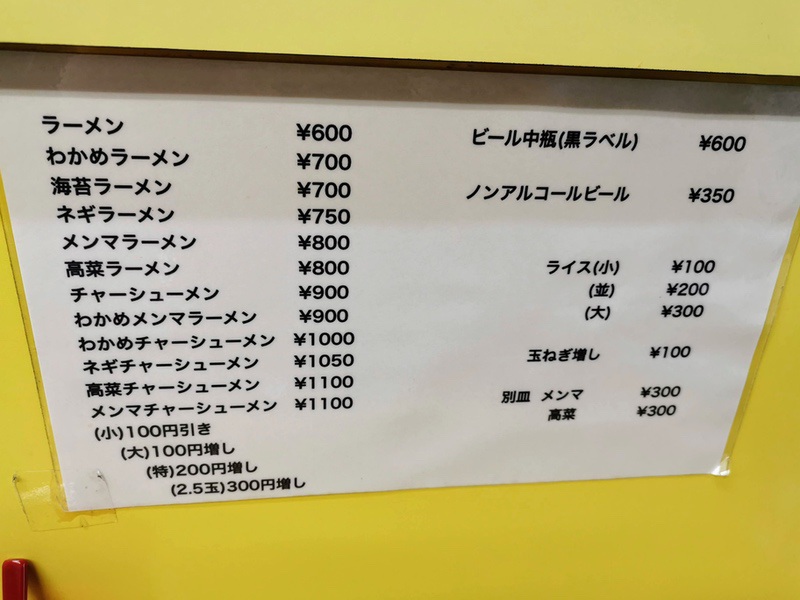 ラーメン ¥600
わかめラーメン ¥700
海苔ラーメン ¥700
ネギラーメン ¥750
メンマラーメン ¥800
高菜ラーメン ¥800
チャーシューメン ¥900
わかめメンマラーメン ¥900
わかめチャーシューメン ¥1000
ネギチャーシューメン ¥1050
高菜チャーシューメン ¥1100
メンマチャーシューメン ¥1100
(小)100円引き
(大)100円増し
(特)200円増し
(2.5玉)300円増し
ビール中瓶(黒ラベル) ¥600
ノンアルコールビール ¥350
ライス(小) ¥100
(並) ¥200
(大) ¥300
玉ねぎ増し ¥100
別皿 メンマ ¥300
高菜 ¥300